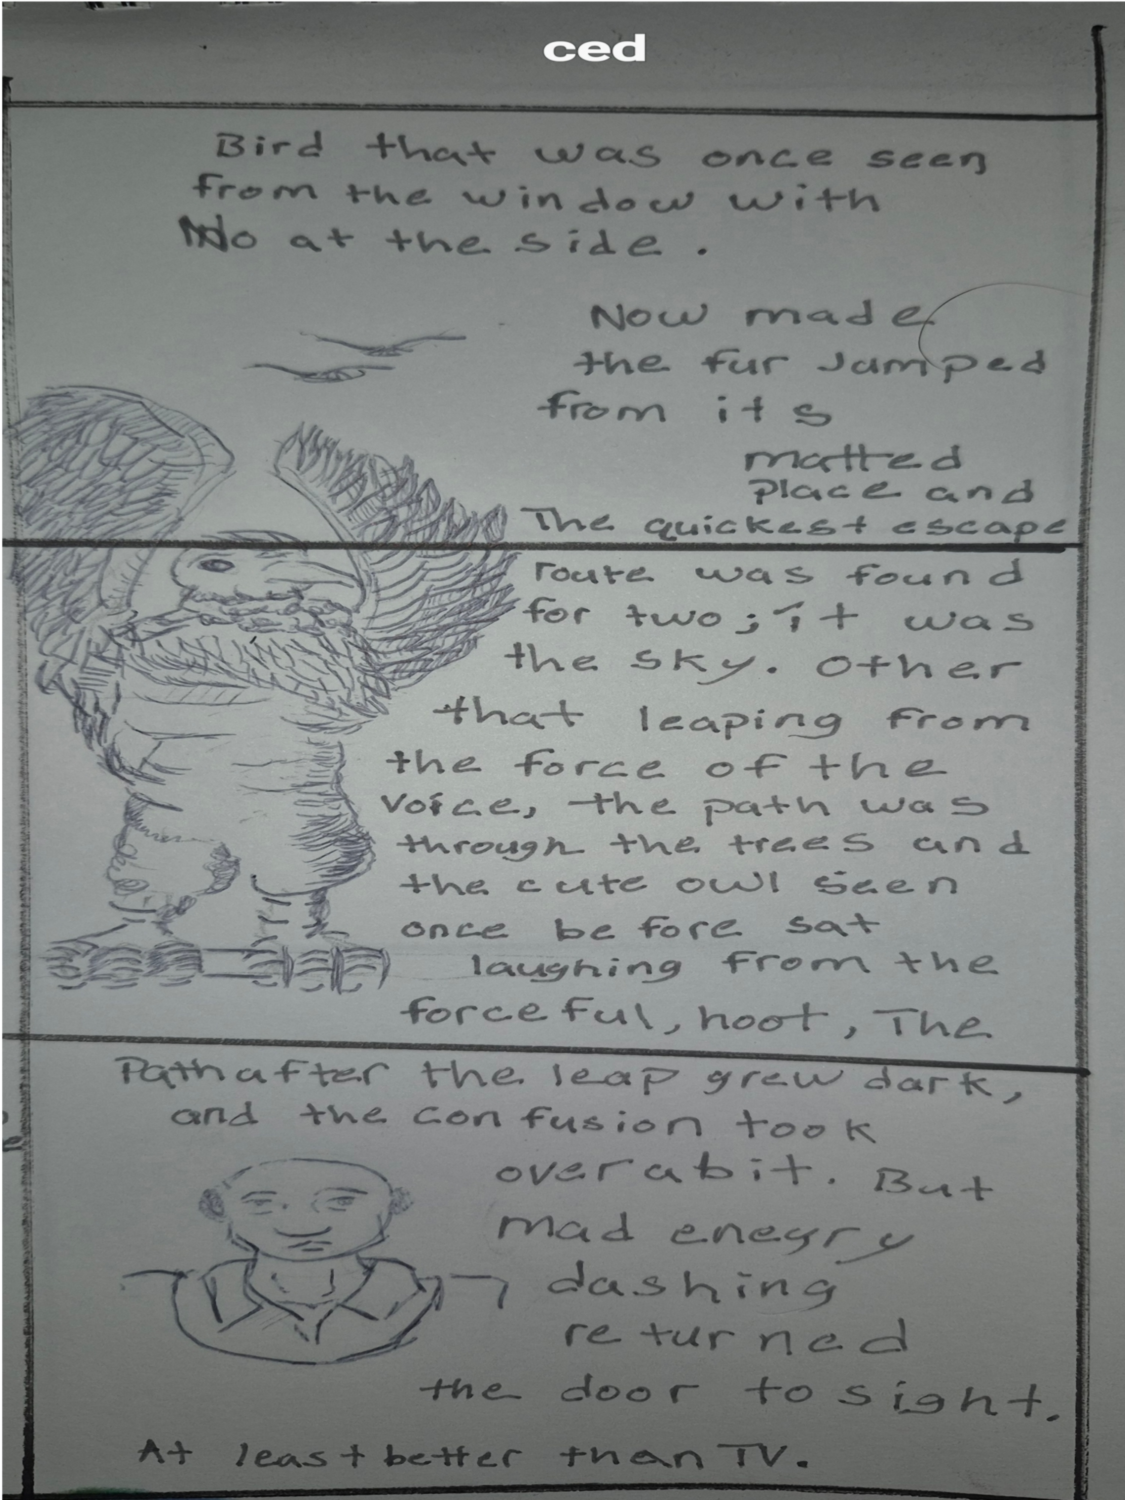 ced
Bird that was once seen
from the window with
No at the side.
Now made
the fur Jamped
from its
matted
place and
The quickest escape
route was found
for two; it was
the sky. Other
that leaping from
the force of the
voice, the path was
through the trees and
the cute owl seen
once before sat
laughing from the
forceful, hoot, The
Path after the leap grew dark,
and the confusion took
over a bit. But
mad enegry
dashing
returned
the door to sight.
At least better than TV.